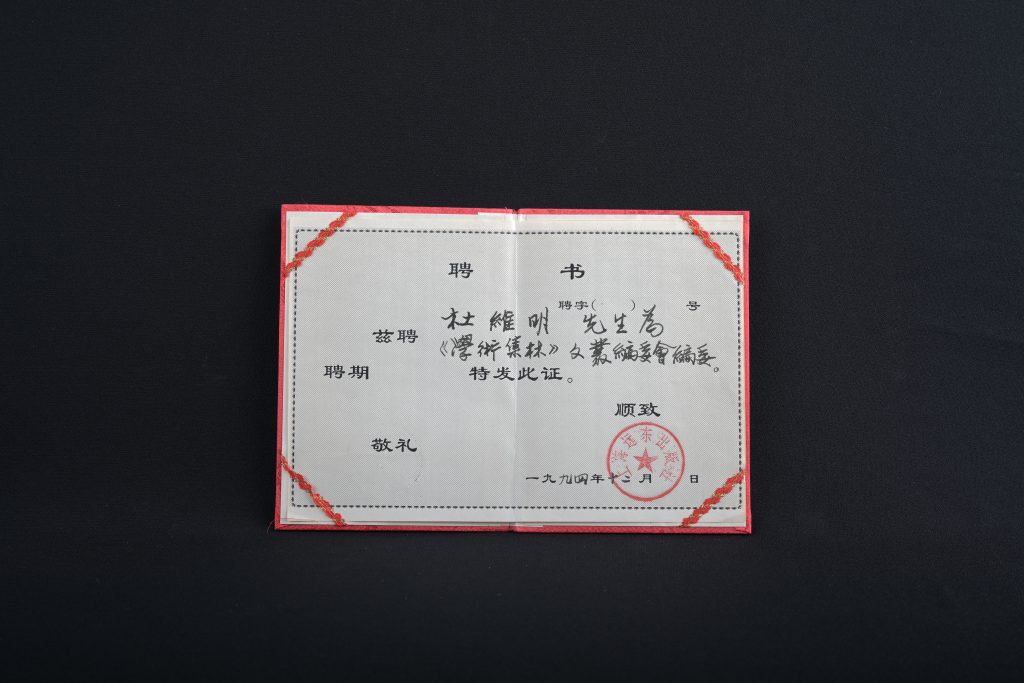 聘 书
聘字( ) 号
兹聘 杜維明 先生為
《學術集林》文叢編委會編委。
聘期 特发此证。
顺致
敬礼
上海远东出版社
一九九四年十二月 日